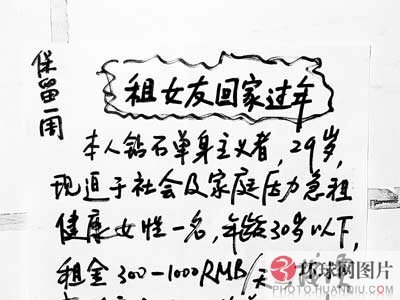 保留一周
租女友回家过年
本人钻石单身主义者，29岁，
现迫于社会及家庭压力急租
健康女性一名，年龄30岁以下，
租金300-1000RMB/天
环球网图片
PHOTO.HUANQIU.COM